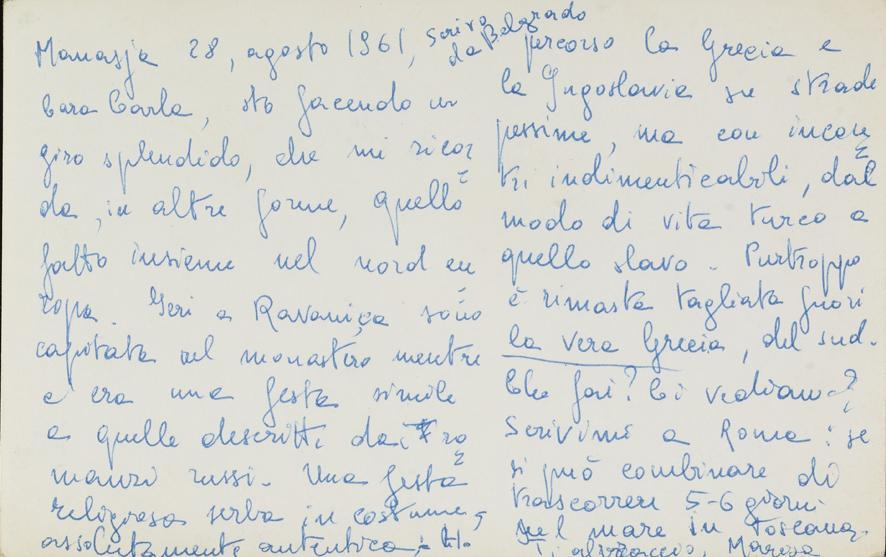 Manasja 28, agosto 1961, Scrivo
da Belgrado
Cara Carla, sto facendo un
giro splendido, che mi ricor
da, in altre forme, quello
fatto insieme nel nord eu
ropa. Ieri a Ravanica sono
capitata nel monastero mentre
c'era una festa simile
a quelle descritti dai ro
manzi russi. Una festa
religiosa serba in costume,
assolutamente autentica.
percorso la Grecia e
la Jugoslavia su strade
pessime, ma con incon
tri indimenticabili, dal
modo di vita turco a
quello slavo. Purtroppo
è rimasta tagliata fuori
la vera Grecia, del sud.
Che fai? Ci vediamo?
Scrivimi a Roma: se
si può combinare di
trascorrere 5-6 giorni
nel mare in Toscana.
Ti abbraccio, Marisa